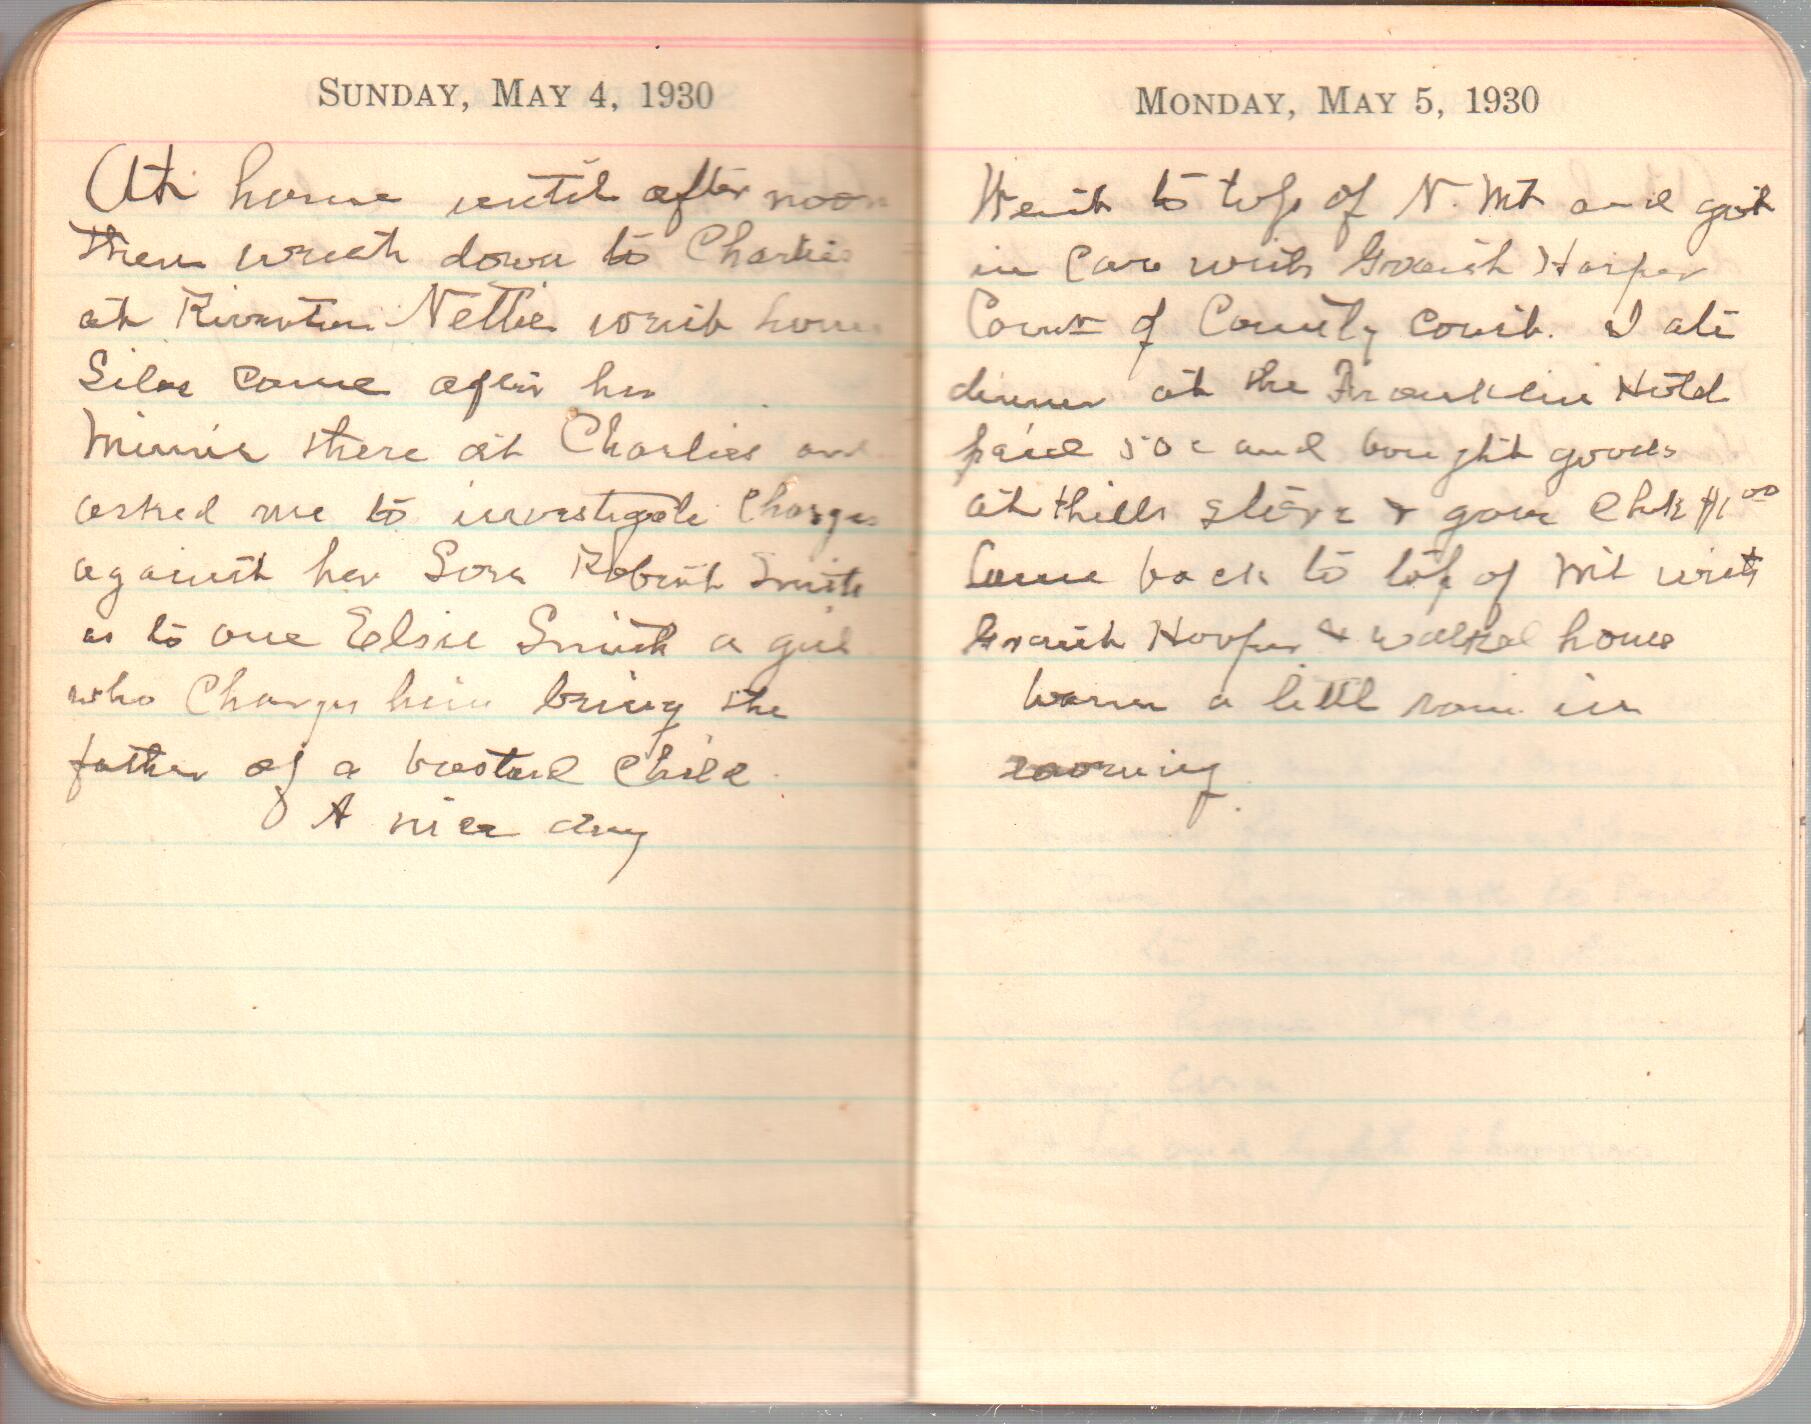 SUNDAY, MAY 4, 1930
At home until after noon
then went down to Charlies
at Riverton Nettie went home
Silas came after her
Minnie there at Charlies and
asked me to investigate Charges
against her Son Robert Smith
as to one Elsie Smith a girl
who Charges him being the
father of a bastard Child
A nice day
MONDAY, MAY 5, 1930
Went to top of N. Mt and got
in Car with Grant Harper
Court of County Court. I ate
dinner at the Franklin Hotel
paid 50c and bought goods
at store & gave Chk $1 00
Came back to top of Mt with
Grant Harper & walked home
warm a little rain in
morning.